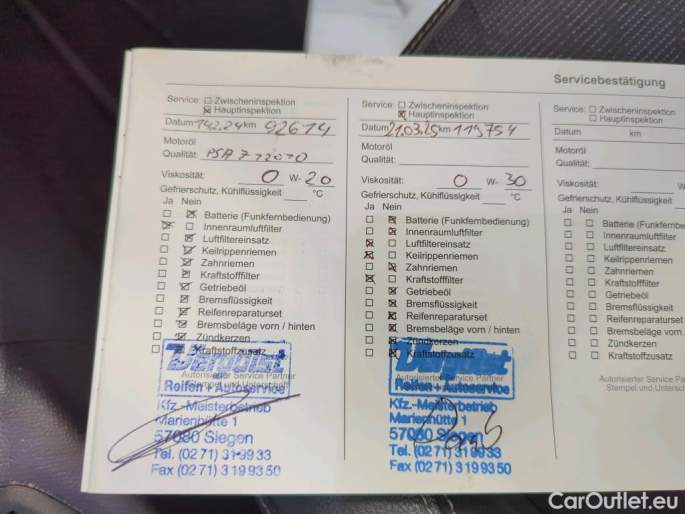 Servicebestätigung
Service: Zwischeninspektion
Hauptinspektion
Datum 14.2.24 km 92614
Motoröl
Qualität: PSA
Viskosität: 0 W- 20
Gefrierschutz, Kühlflüssigkeit °C
Ja Nein
Batterie (Funkfernbedienung)
Innenraumluftfilter
Luftfiltereinsatz
Keilrippenriemen
Zahnriemen
Kraftstofffilter
Getriebeöl
Bremsflüssigkeit
Reifenreparaturset
Bremsbeläge vorn / hinten
Zündkerzen
Kraftstoffzusatz
Autorisierter Service Partner
Stempel und Unterschrift
Reifen + Autoservice
Kfz.-Meisterbetrieb
Marienhütte 1
57080 Siegen
Tel. (02 71) 31 99 33
Fax (02 71) 3 19 93 50
Service: Zwischeninspektion
Hauptinspektion
Datum 21.03.25 km 119754
Motoröl
Qualität:
Viskosität: 0 W- 30
Gefrierschutz, Kühlflüssigkeit °C
Ja Nein
Batterie (Funkfernbedienung)
Innenraumluftfilter
Luftfiltereinsatz
Keilrippenriemen
Zahnriemen
Kraftstofffilter
Getriebeöl
Bremsflüssigkeit
Reifenreparaturset
Bremsbeläge vorn / hinten
Zündkerzen
Kraftstoffzusatz
Autorisierter Service Partner
Reifen + Autoservice
Kfz.-Meisterbetrieb
Marienhütte 1
57080 Siegen
Tel. (02 71) 31 99 33
Fax (02 71) 3 19 93 50
Service: Zwischeninspektion
Hauptinspektion
Datum km
Motoröl
Qualität:
Viskosität: W-
Gefrierschutz, Kühlflüssigkeit
Ja Nein
Batterie (Funkfernbe
Innenraumluftfilter
Luftfiltereinsatz
Keilrippenriemen
Zahnriemen
Kraftstofffilter
Getriebeöl
Bremsflüssigkeit
Reifenreparaturset
Bremsbeläge vorn
Zündkerzen
Kraftstoffzusatz
Autorisierter Service Pa
Stempel und Untersch
CarOutlet.eu